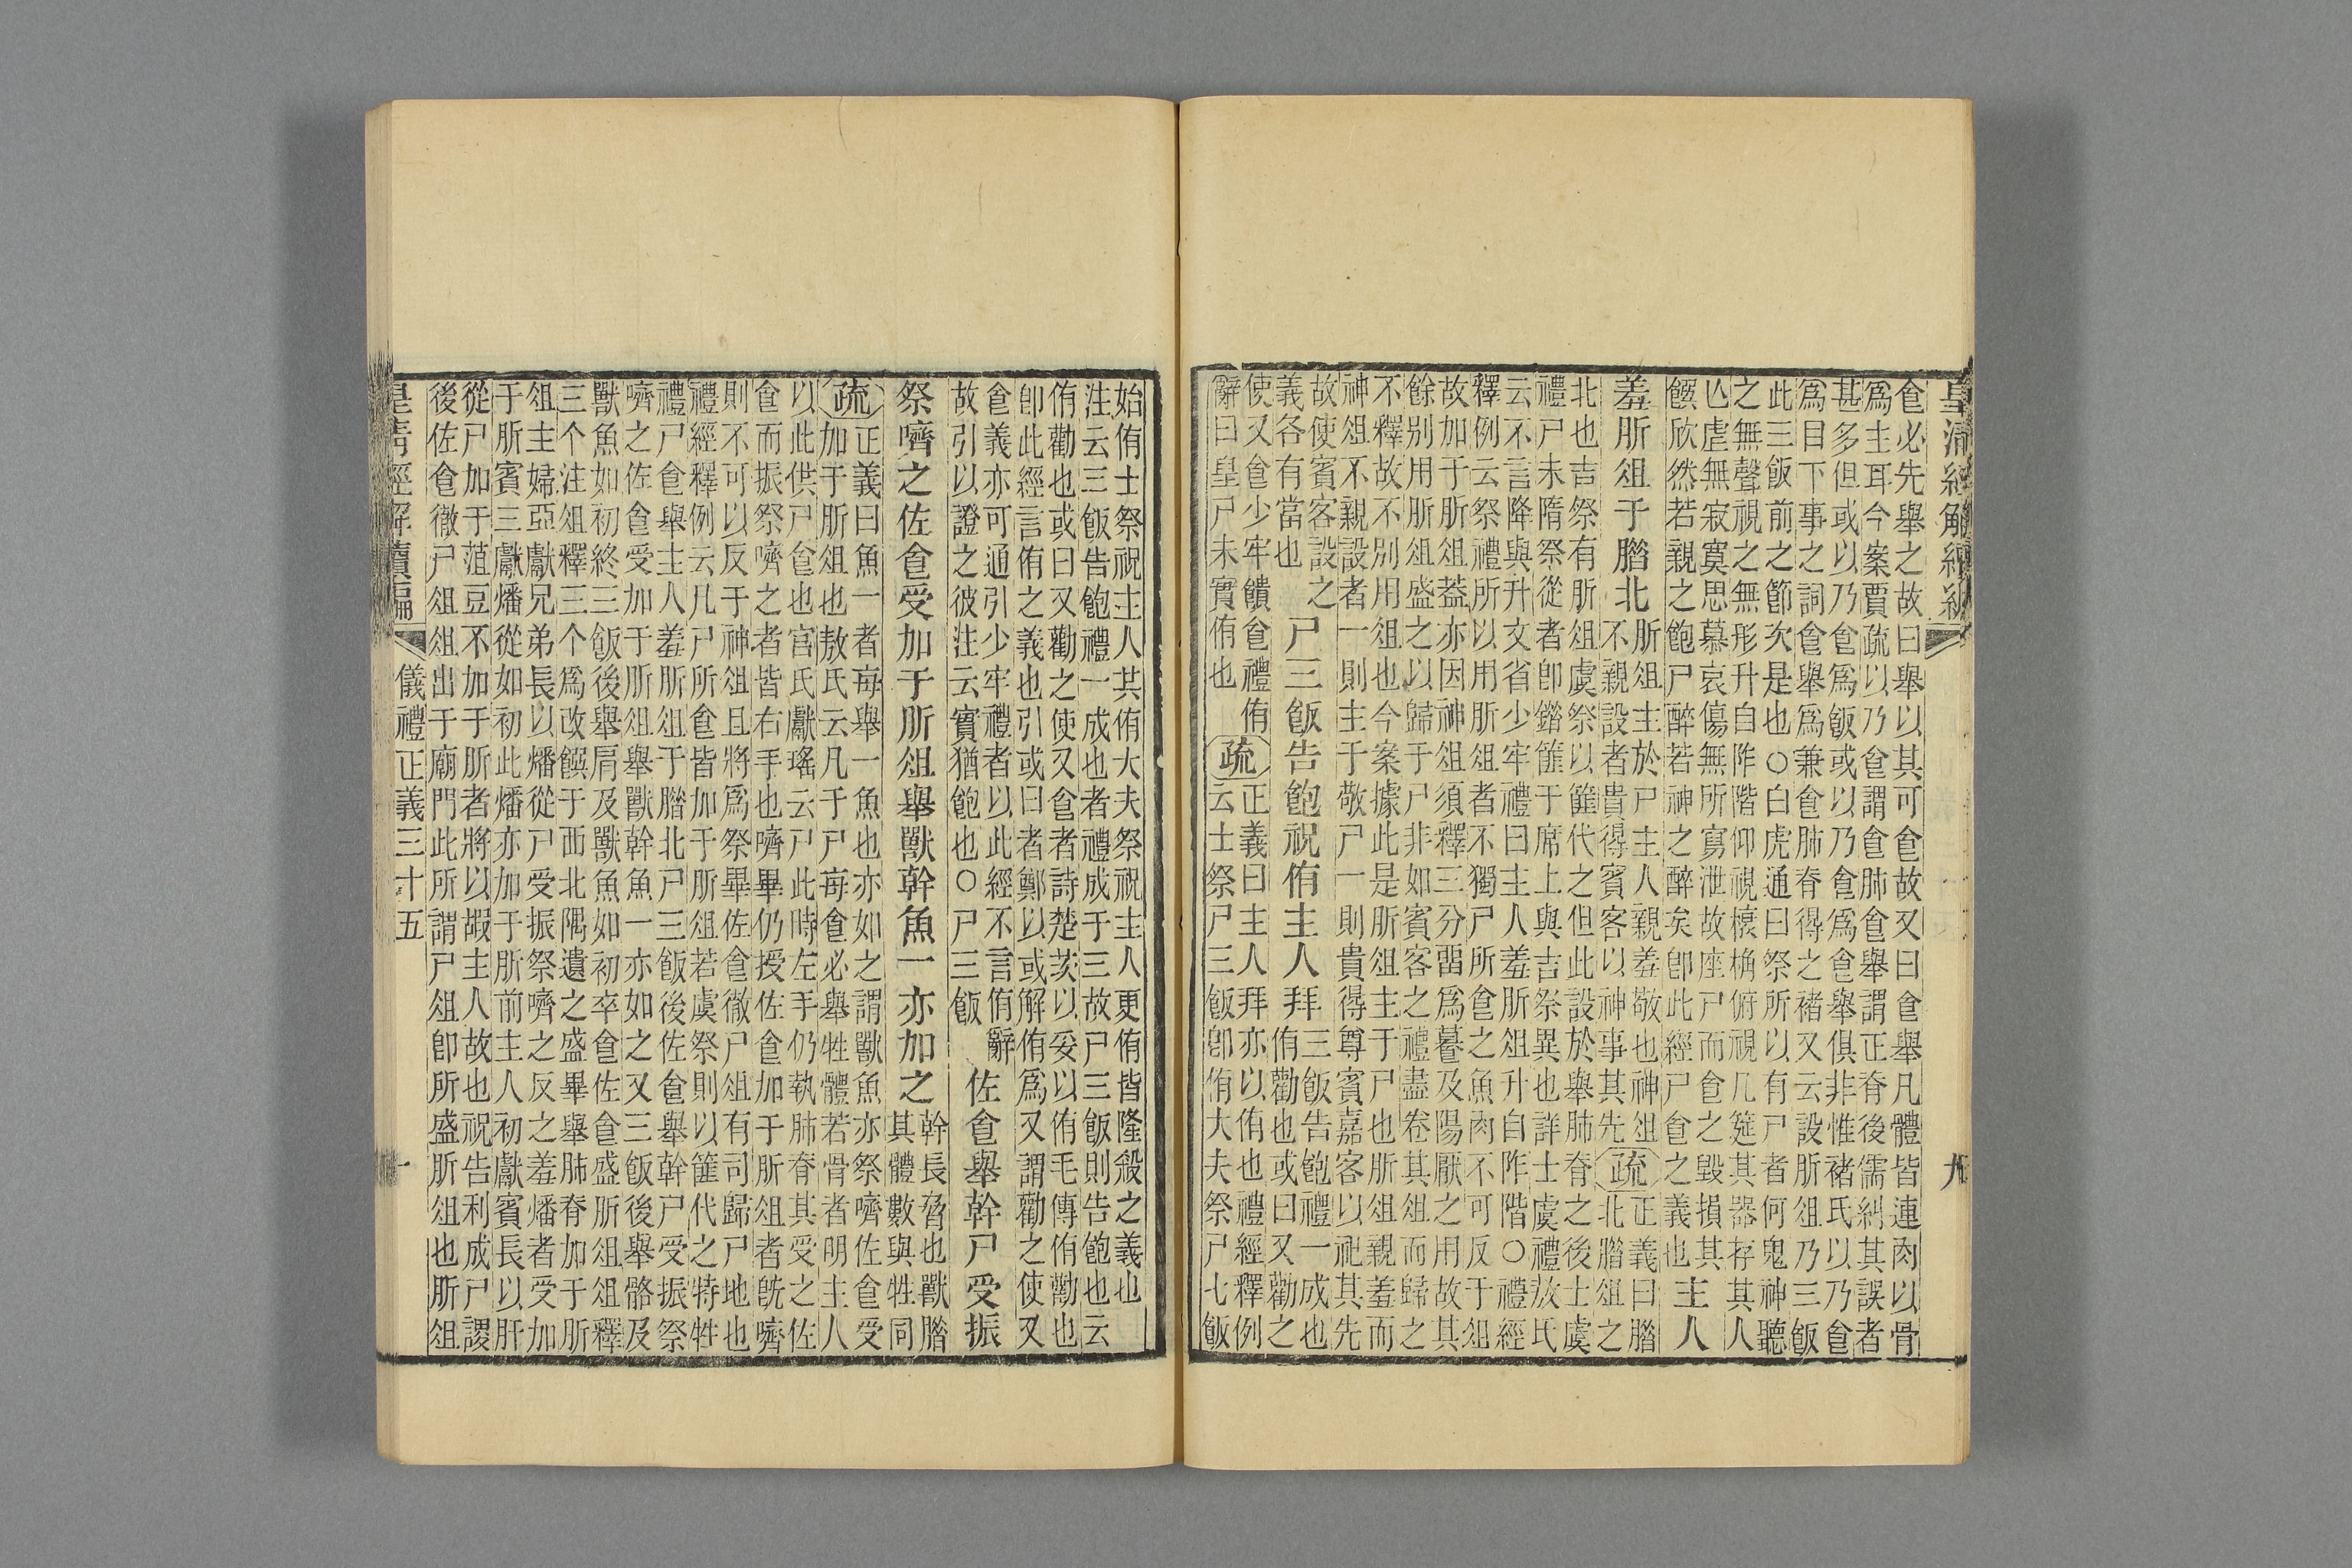 皇清經解續編　九
食必先舉之故曰舉以其可食故又曰食舉凡體皆連肉以骨
為主耳今案賈疏以乃食謂食肺食舉謂正脊後儒糾其誤者
甚多但或以乃食為飯或以乃食為食舉俱非惟褚氏以乃食
為目下事之詞食舉為兼食肺脊得之褚又云設肵俎乃三飯
此三飯前之節次是也○白虎通曰祭所以有尸者何鬼神聽
之無聲視之無形升自阼階仰視榱桷俯視几筵其器存其人
亾虛無寂寞思慕哀傷無所寫泄故座尸而食之毀損其
饌欣然若親之飽尸醉若神之醉矣卽此經尸食之義也
主人
羞肵俎于腊北
肵俎主於尸主人親羞敬也神俎
不親設者貴得賓客以神事其先
疏
正義曰腊
北腊俎之
北也吉祭有肵俎虞祭以篚代之但此設於舉肺脊之後士虞
禮尸未隋祭從者卽錯篚于席上與吉祭異也詳士虞禮敖氏
云不言降與升文省少牢禮曰主人羞肵俎升自阼階○禮經
釋例云祭禮所以用肵俎者不獨尸所食之魚肉不可反于俎
故加于肵俎葢亦因神俎須釋三分畱為㬪及陽厭之用故其
餘别用肵俎盛之以歸于尸非如賓客之禮盡卷其俎而歸之
不釋故不别用俎也今案據此是肵俎主于尸也肵俎親羞而
神俎不親設者一則主于敬尸一則貴得尊賓嘉客以祀其先
故使賓客設之
義各有當也
尸三飯告飽祝侑主人拜
三飯告飽禮一成也
侑勸也或曰又勸之
使又食少牢饋食禮侑
辭曰皇尸未實侑也
疏
正義曰主人拜亦以侑也禮經釋例
云士祭尸三飯卽侑大夫祭尸七飯
始侑士祭祝主人共侑大夫祭祝主人更侑皆隆殺之義也
注云三飯告飽禮一成也者禮成于三故尸三飯則告飽也云
侑勸也或曰又勸之使又食者詩楚茨以妥以侑毛傳侑勸也
卽此經言侑之義也引或曰者鄭以或解侑為又謂勸之使又
食義亦可通引少牢禮者以此經不言侑辭
故引以證之彼注云實猶飽也○尸三飯
佐食舉幹尸受振
祭嚌之佐食受加于肵俎舉獸幹魚一亦加之
幹長脅也獸腊
其體數與牲同
疏
正義曰魚一者每舉一魚也亦如之謂獸魚亦祭嚌佐食受
加于肵俎也敖氏云凡于尸每食必舉牲體若骨者明主人
以此供尸食也官氏獻瑤云尸此時左手仍執肺脊其受之佐
食而振祭嚌之者皆右手也嚌畢仍授佐食加于肵俎者旣嚌
則不可以反于神俎且將為祭畢佐食徹尸俎有司歸尸地也
禮經釋例云凡尸所食皆加于肵俎若虞祭則以篚代之特牲
禮尸食舉主人羞肵俎于腊北尸三飯後佐食舉幹尸受振祭
嚌之佐食受加于肵俎舉獸幹魚一亦如之又三飯後舉骼及
獸魚如初終三飯後舉肩及獸魚如初卒食佐食盛肵俎俎釋
三个注俎釋三个為改饌于西北隅遺之盛畢舉肺脊加于肵
俎主婦亞獻兄弟長以燔從尸受振祭嚌之反之羞燔者受加
于肵賓三獻燔從如初此燔亦加于肵前主人初獻賓長以肝
從尸加于菹豆不加于肵者將以嘏主人故也祝告利成尸謖
後佐食徹尸俎俎出于廟門此所謂尸俎卽所盛肵俎也肵俎
皇清經解續編　儀禮正義三十五　一